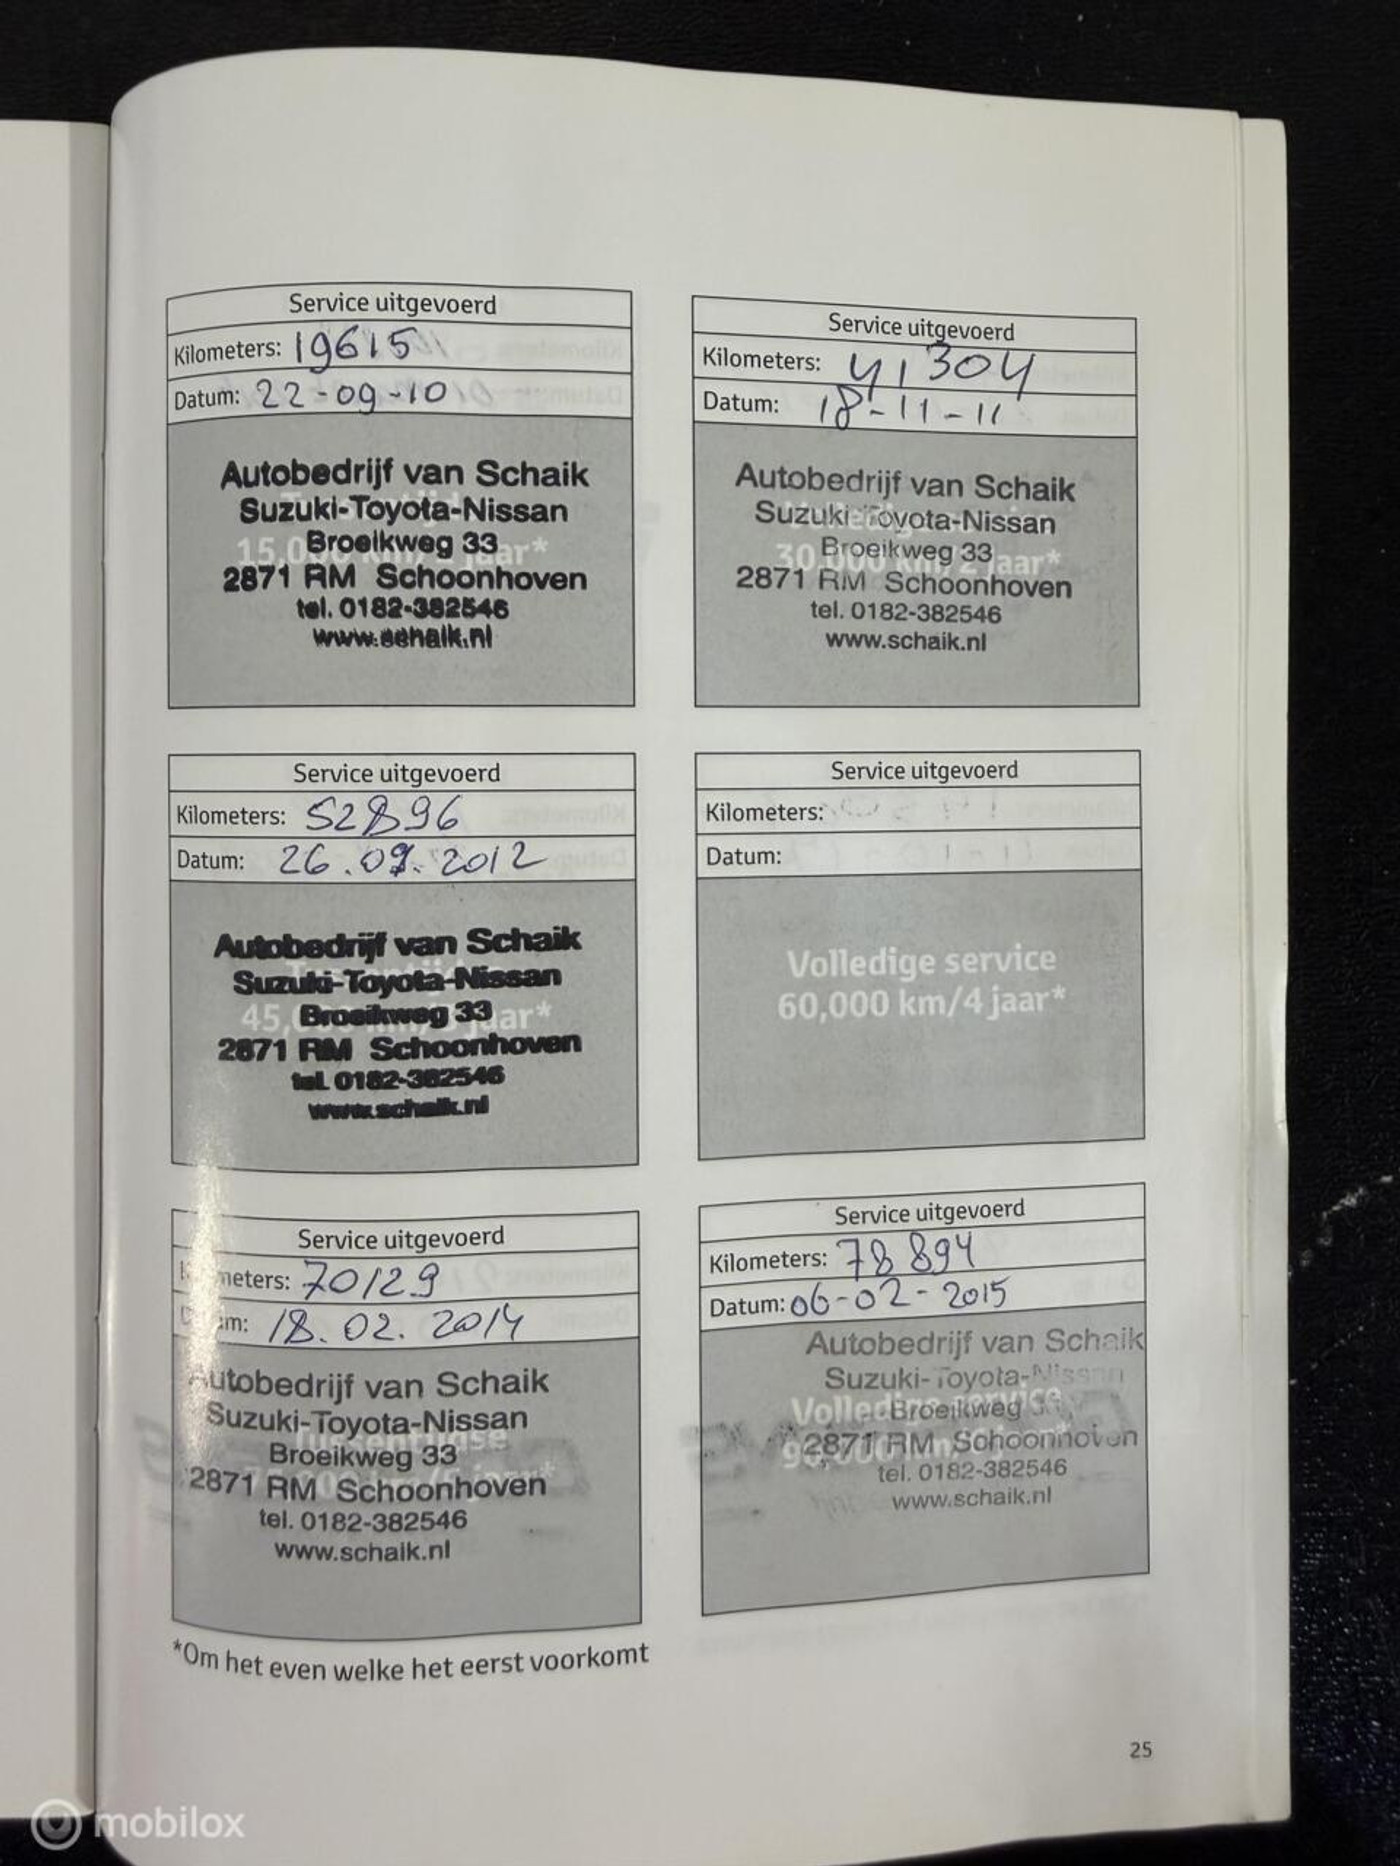 Service uitgevoerd
Kilometers: 19615
Datum: 22-09-10
Autobedrijf van Schaik
Suzuki-Toyota-Nissan
Broeikweg 33
15,0 jaar*
2871 RM Schoonhoven
tel. 0182-382546
www.schaik.nl
Service uitgevoerd
Kilometers: 41304
Datum: 18-11-11
Autobedrijf van Schaik
Suzuki-Toyota-Nissan
Broeikweg 33
30,000 km/2 jaar*
2871 RM Schoonhoven
tel. 0182-382546
www.schaik.nl
Service uitgevoerd
Kilometers: 52896
Datum: 26.09.2012
Autobedrijf van Schaik
Suzuki-Toyota-Nissan
Broeikweg 33
45, jaar*
2871 RM Schoonhoven
tel. 0182-382546
www.schaik.nl
Service uitgevoerd
Kilometers:
Datum:
Volledige service
60,000 km/4 jaar*
Service uitgevoerd
meters: 70129
m: 18.02.2014
Autobedrijf van Schaik
Suzuki-Toyota-Nissan
Tussentijdse
Broeikweg 33
2871 RM Schoonhoven
tel. 0182-382546
www.schaik.nl
Service uitgevoerd
Kilometers: 78894
Datum: 06-02-2015
Autobedrijf van Schaik
Suzuki-Toyota-Nissan
Volledige service
Broeikweg 33
2871 RM Schoonhoven
tel. 0182-382546
www.schaik.nl
*Om het even welke het eerst voorkomt
25
mobilox